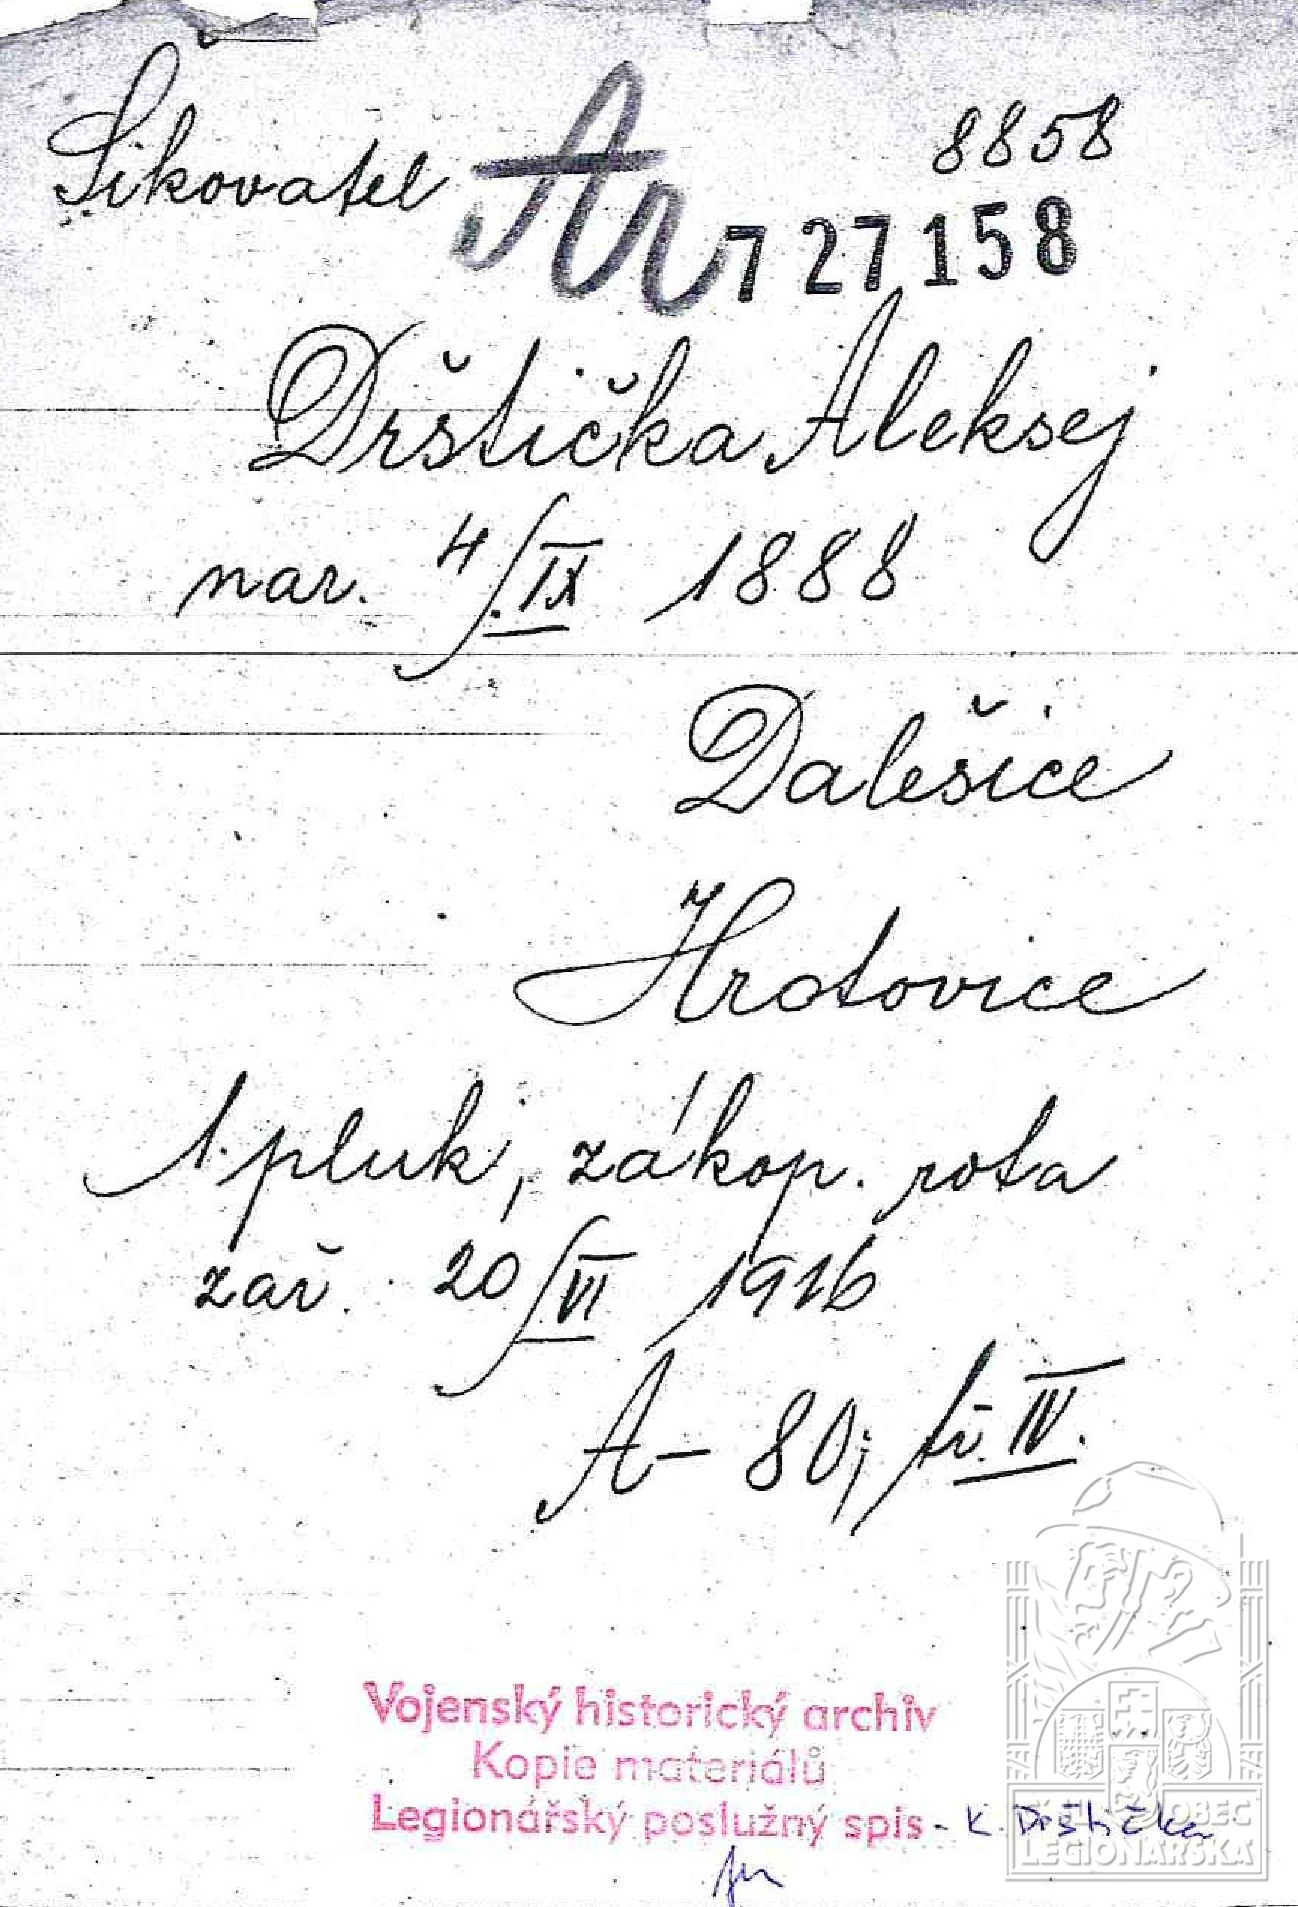 Šikovatel Ar 8858
727158
Drštička Aleksej
nar. 4/IX 1888
Dalešice
Hrotovice
1. pluk, zákop. rota
zař. 20/VI 1916
A – 80; tř. IV.
Vojenský historický archiv
Kopie materiálů
Legionářský poslužný spis - K. Drštička
OBEC
LEGIONÁŘSKÁ